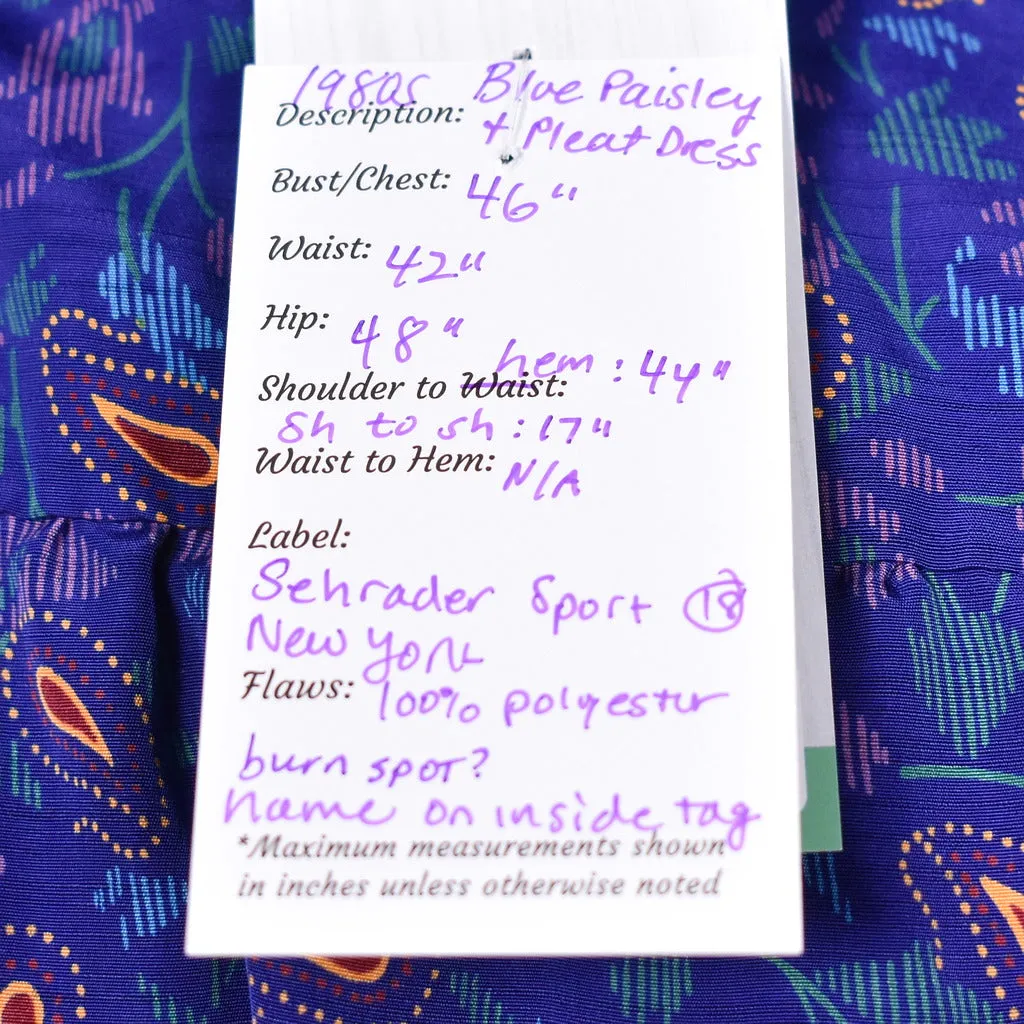 1980s Blue Paisley
Description: + Pleat Dress
Bust/Chest: 46"
Waist: 42"
Hip: 48"
hem: 44"
Shoulder to Waist:
Sh to sh: 17"
Waist to Hem: N/A
Label:
Sehrader Sport 18
New York
Flaws: 100% polyester
burn spot?
name on inside tag
*Maximum measurements shown
in inches unless otherwise noted